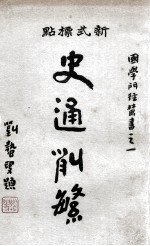 新式標點
國學門徑叢書之一
史通削繁
劉
題